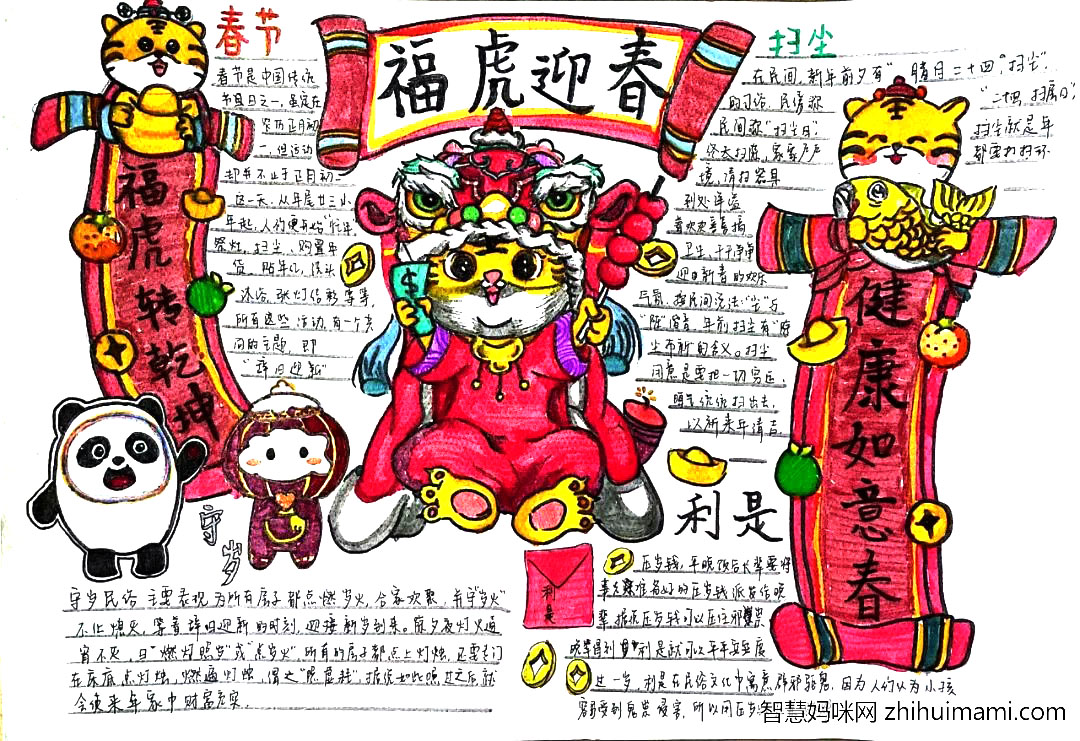 福虎迎春
福虎转乾坤
春节
春节是中国传统
节日之一,虽定在
农历正月初
一,但活动
却并不止于正月初一
这一天。从年尾廿三小
年起,人们便开始"忙年"
祭灶,扫尘,购置年
货,贴年红,洗头
沐浴,张灯结彩等等,
所有这些活动,有一个共
同的主题,即
"辞旧迎新"
扫尘
在民间,新年前夕有"腊月二十四,扫尘"
的习俗,民谚称"二十四,扫房日"
民间称"扫尘日"
扫尘就是年
都要打扫环
境,清扫器具
到处洋溢
着欢欢喜喜搞
卫生、干干净净
迎新春的欢乐
气氛。按民间说法:"尘"与
"陈"谐音,年前扫尘有"除
尘布新"的含义。扫尘
用意是要把一切穷运,
晦气统统扫出去,
以祈来年清吉。
健康如意春
守岁
守岁民俗主要表现为所有房子都点燃岁火,合家欢聚,并守"岁火"
不让熄灭,等着辞旧迎新的时刻,迎接新岁到来。除夕夜灯火通
宵不灭,曰"燃灯照岁"或"点岁火",所有的房子都点上灯烛,还要专门
在床底点灯烛,燃遍灯烛,谓之"照虚耗",据说如此照过之后,就
会使来年家中财富充实。
利是
利是
压岁钱,年晚饭后长辈要将
事先准备好的压岁钱派发给晚
辈,据说压岁钱可以压住邪祟
晚辈得到利是就可以平平安安度
过一岁,利是在民俗文化中寓意辟邪驱鬼,因为人们认为小孩
容易受到鬼祟侵害,所以用压岁
智慧妈咪网 zhihuimami.com